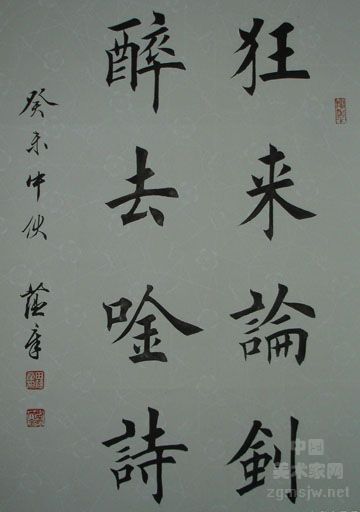 狂来論剑
醉去唫詩
癸未中伏
中国
美术家网
zgmsjw.net